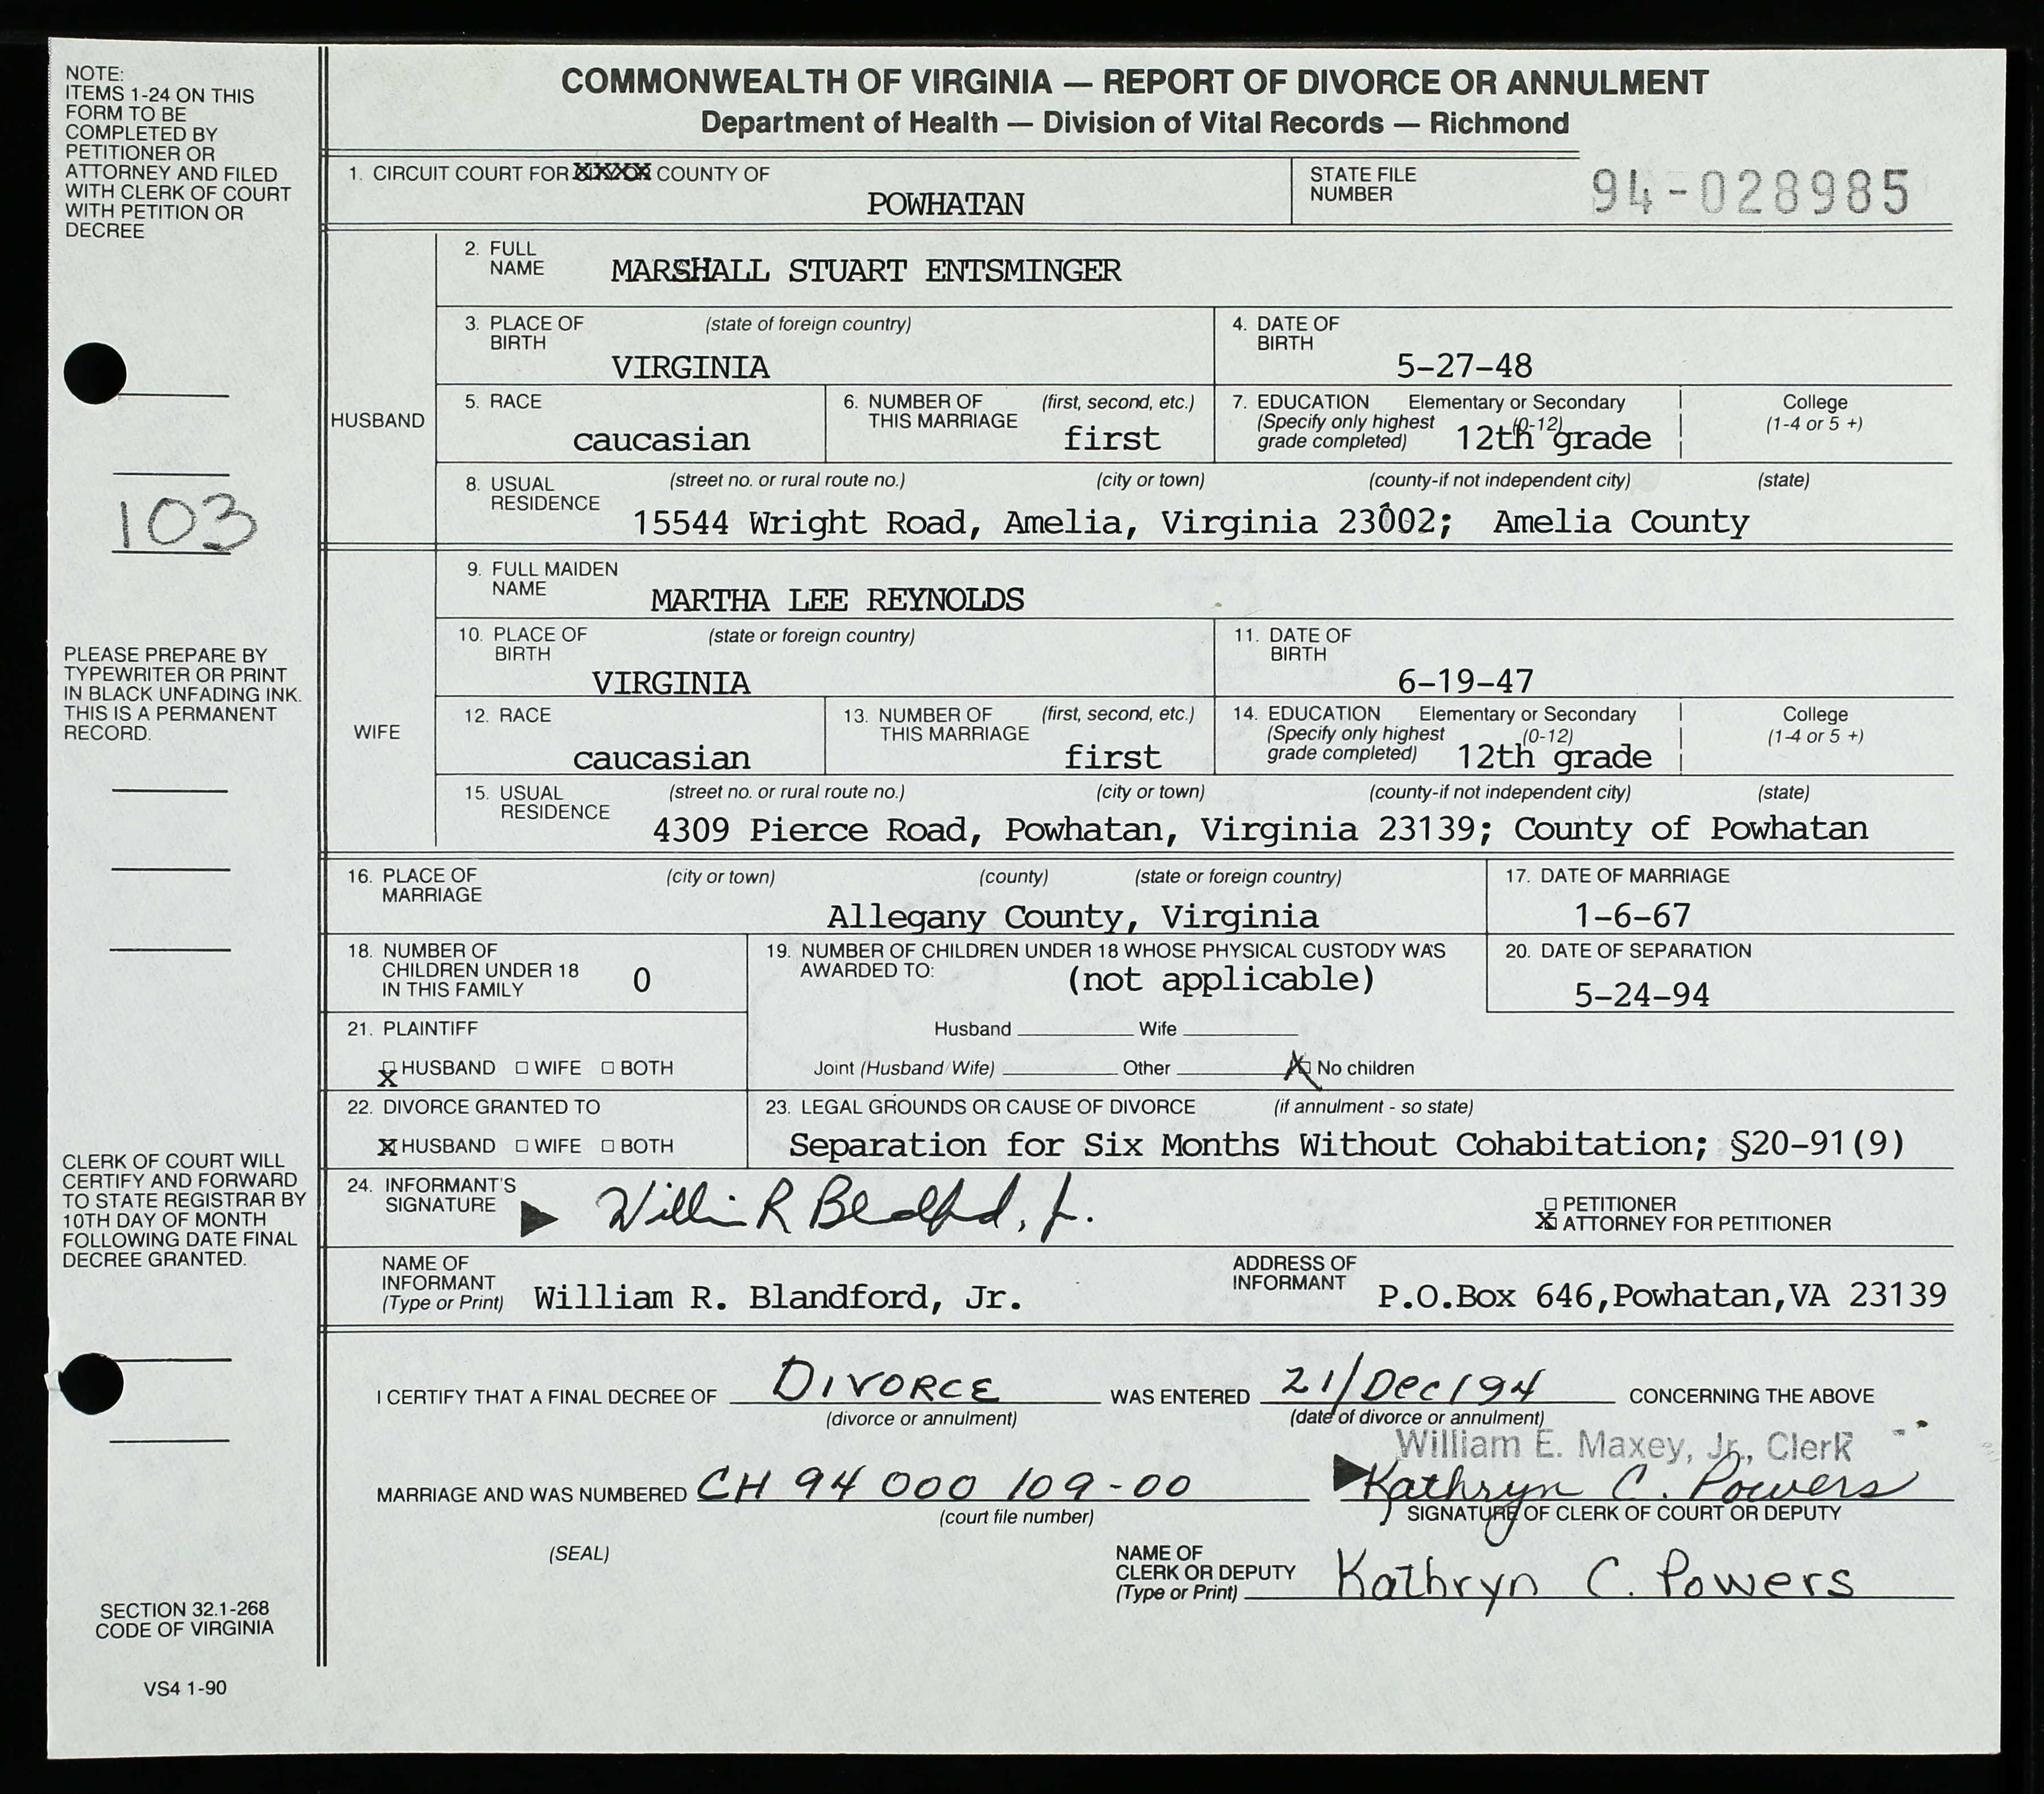 NOTE:
ITEMS 1-24 ON THIS
FORM TO BE
COMPLETED BY
PETITIONER OR
ATTORNEY AND FILED
WITH CLERK OF COURT
WITH PETITION OR
DECREE
103
PLEASE PREPARE BY
TYPEWRITER OR PRINT
IN BLACK UNFADING INK.
THIS IS A PERMANENT
RECORD.
CLERK OF COURT WILL
CERTIFY AND FORWARD
TO STATE REGISTRAR BY
10TH DAY OF MONTH
FOLLOWING DATE FINAL
DECREE GRANTED.
SECTION 32.1-268
CODE OF VIRGINIA
VS4 1-90
COMMONWEALTH OF VIRGINIA — REPORT OF DIVORCE OR ANNULMENT
Department of Health — Division of Vital Records — Richmond
1. CIRCUIT COURT FOR XXXX COUNTY OF
POWHATAN
STATE FILE
NUMBER
94-028985
HUSBAND
2. FULL
NAME
MARSHALL STUART ENTSMINGER
3. PLACE OF (state of foreign country)
BIRTH
VIRGINIA
4. DATE OF
BIRTH
5-27-48
5. RACE
caucasian
6. NUMBER OF (first, second, etc.)
THIS MARRIAGE
first
7. EDUCATION Elementary or Secondary
(Specify only highest (0-12)
grade completed) 12th grade
College
(1-4 or 5 +)
8. USUAL (street no. or rural route no.) (city or town) (county-if not independent city) (state)
RESIDENCE
15544 Wright Road, Amelia, Virginia 23002; Amelia County
WIFE
9. FULL MAIDEN
NAME
MARTHA LEE REYNOLDS
10. PLACE OF (state or foreign country)
BIRTH
VIRGINIA
11. DATE OF
BIRTH
6-19-47
12. RACE
caucasian
13. NUMBER OF (first, second, etc.)
THIS MARRIAGE
first
14. EDUCATION Elementary or Secondary
(Specify only highest (0-12)
grade completed) 12th grade
College
(1-4 or 5 +)
15. USUAL (street no. or rural route no.) (city or town) (county-if not independent city) (state)
RESIDENCE
4309 Pierce Road, Powhatan, Virginia 23139; County of Powhatan
16. PLACE OF (city or town) (county) (state or foreign country)
MARRIAGE
Allegany County, Virginia
17. DATE OF MARRIAGE
1-6-67
18. NUMBER OF
CHILDREN UNDER 18 0
IN THIS FAMILY
19. NUMBER OF CHILDREN UNDER 18 WHOSE PHYSICAL CUSTODY WAS
AWARDED TO: (not applicable)
Husband Wife
Joint (Husband/Wife) Other X No children
20. DATE OF SEPARATION
5-24-94
21. PLAINTIFF
X HUSBAND □ WIFE □ BOTH
22. DIVORCE GRANTED TO
X HUSBAND □ WIFE □ BOTH
23. LEGAL GROUNDS OR CAUSE OF DIVORCE (if annulment - so state)
Separation for Six Months Without Cohabitation; §20-91(9)
24. INFORMANT'S
SIGNATURE
William R Blandford, Jr.
□ PETITIONER
X ATTORNEY FOR PETITIONER
NAME OF
INFORMANT
(Type or Print) William R. Blandford, Jr.
ADDRESS OF
INFORMANT P.O.Box 646,Powhatan,VA 23139
I CERTIFY THAT A FINAL DECREE OF DIVORCE WAS ENTERED 21/Dec/94 CONCERNING THE ABOVE
(divorce or annulment) (date of divorce or annulment)
William E. Maxey, Jr., Clerk
MARRIAGE AND WAS NUMBERED CH 94 000 109-00 Kathryn C. Powers
(court file number) SIGNATURE OF CLERK OF COURT OR DEPUTY
(SEAL)
NAME OF
CLERK OR DEPUTY
(Type or Print) Kathryn C. Powers